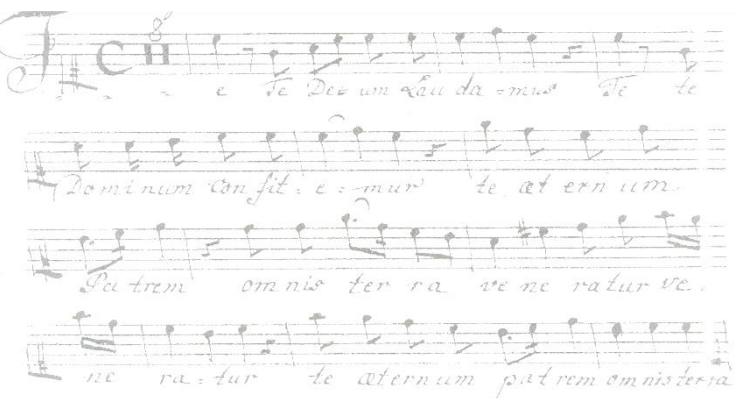 8
Te Te De=um Lau da=mus Te te
Dominum Con fit=e=-mur te æt ern um.
Pa trem om nis ter ra ve ne ratur ve.
ne ra=tur te æternum pat rem om nis terra